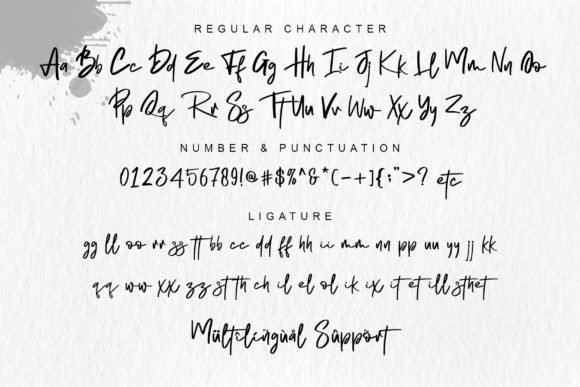 REGULAR CHARACTER
Aa Bb Cc Dd Ee Ff Gg Hh Ii Jj Kk Ll Mm Nn Oo
Pp Qq Rr Ss Tt Uu Vv Ww Xx Yy Zz
NUMBER & PUNCTUATION
0123456789!@#$%^&*(-+]{;">? etc
LIGATURE
gg ll oo rr ss tt bb cc dd ff hh ii mm nn pp uu yy jj kk
qq ww xx zz st th ch il el ol ik ix it et ill sthet
Mültîlíngùàl Sûppõrt